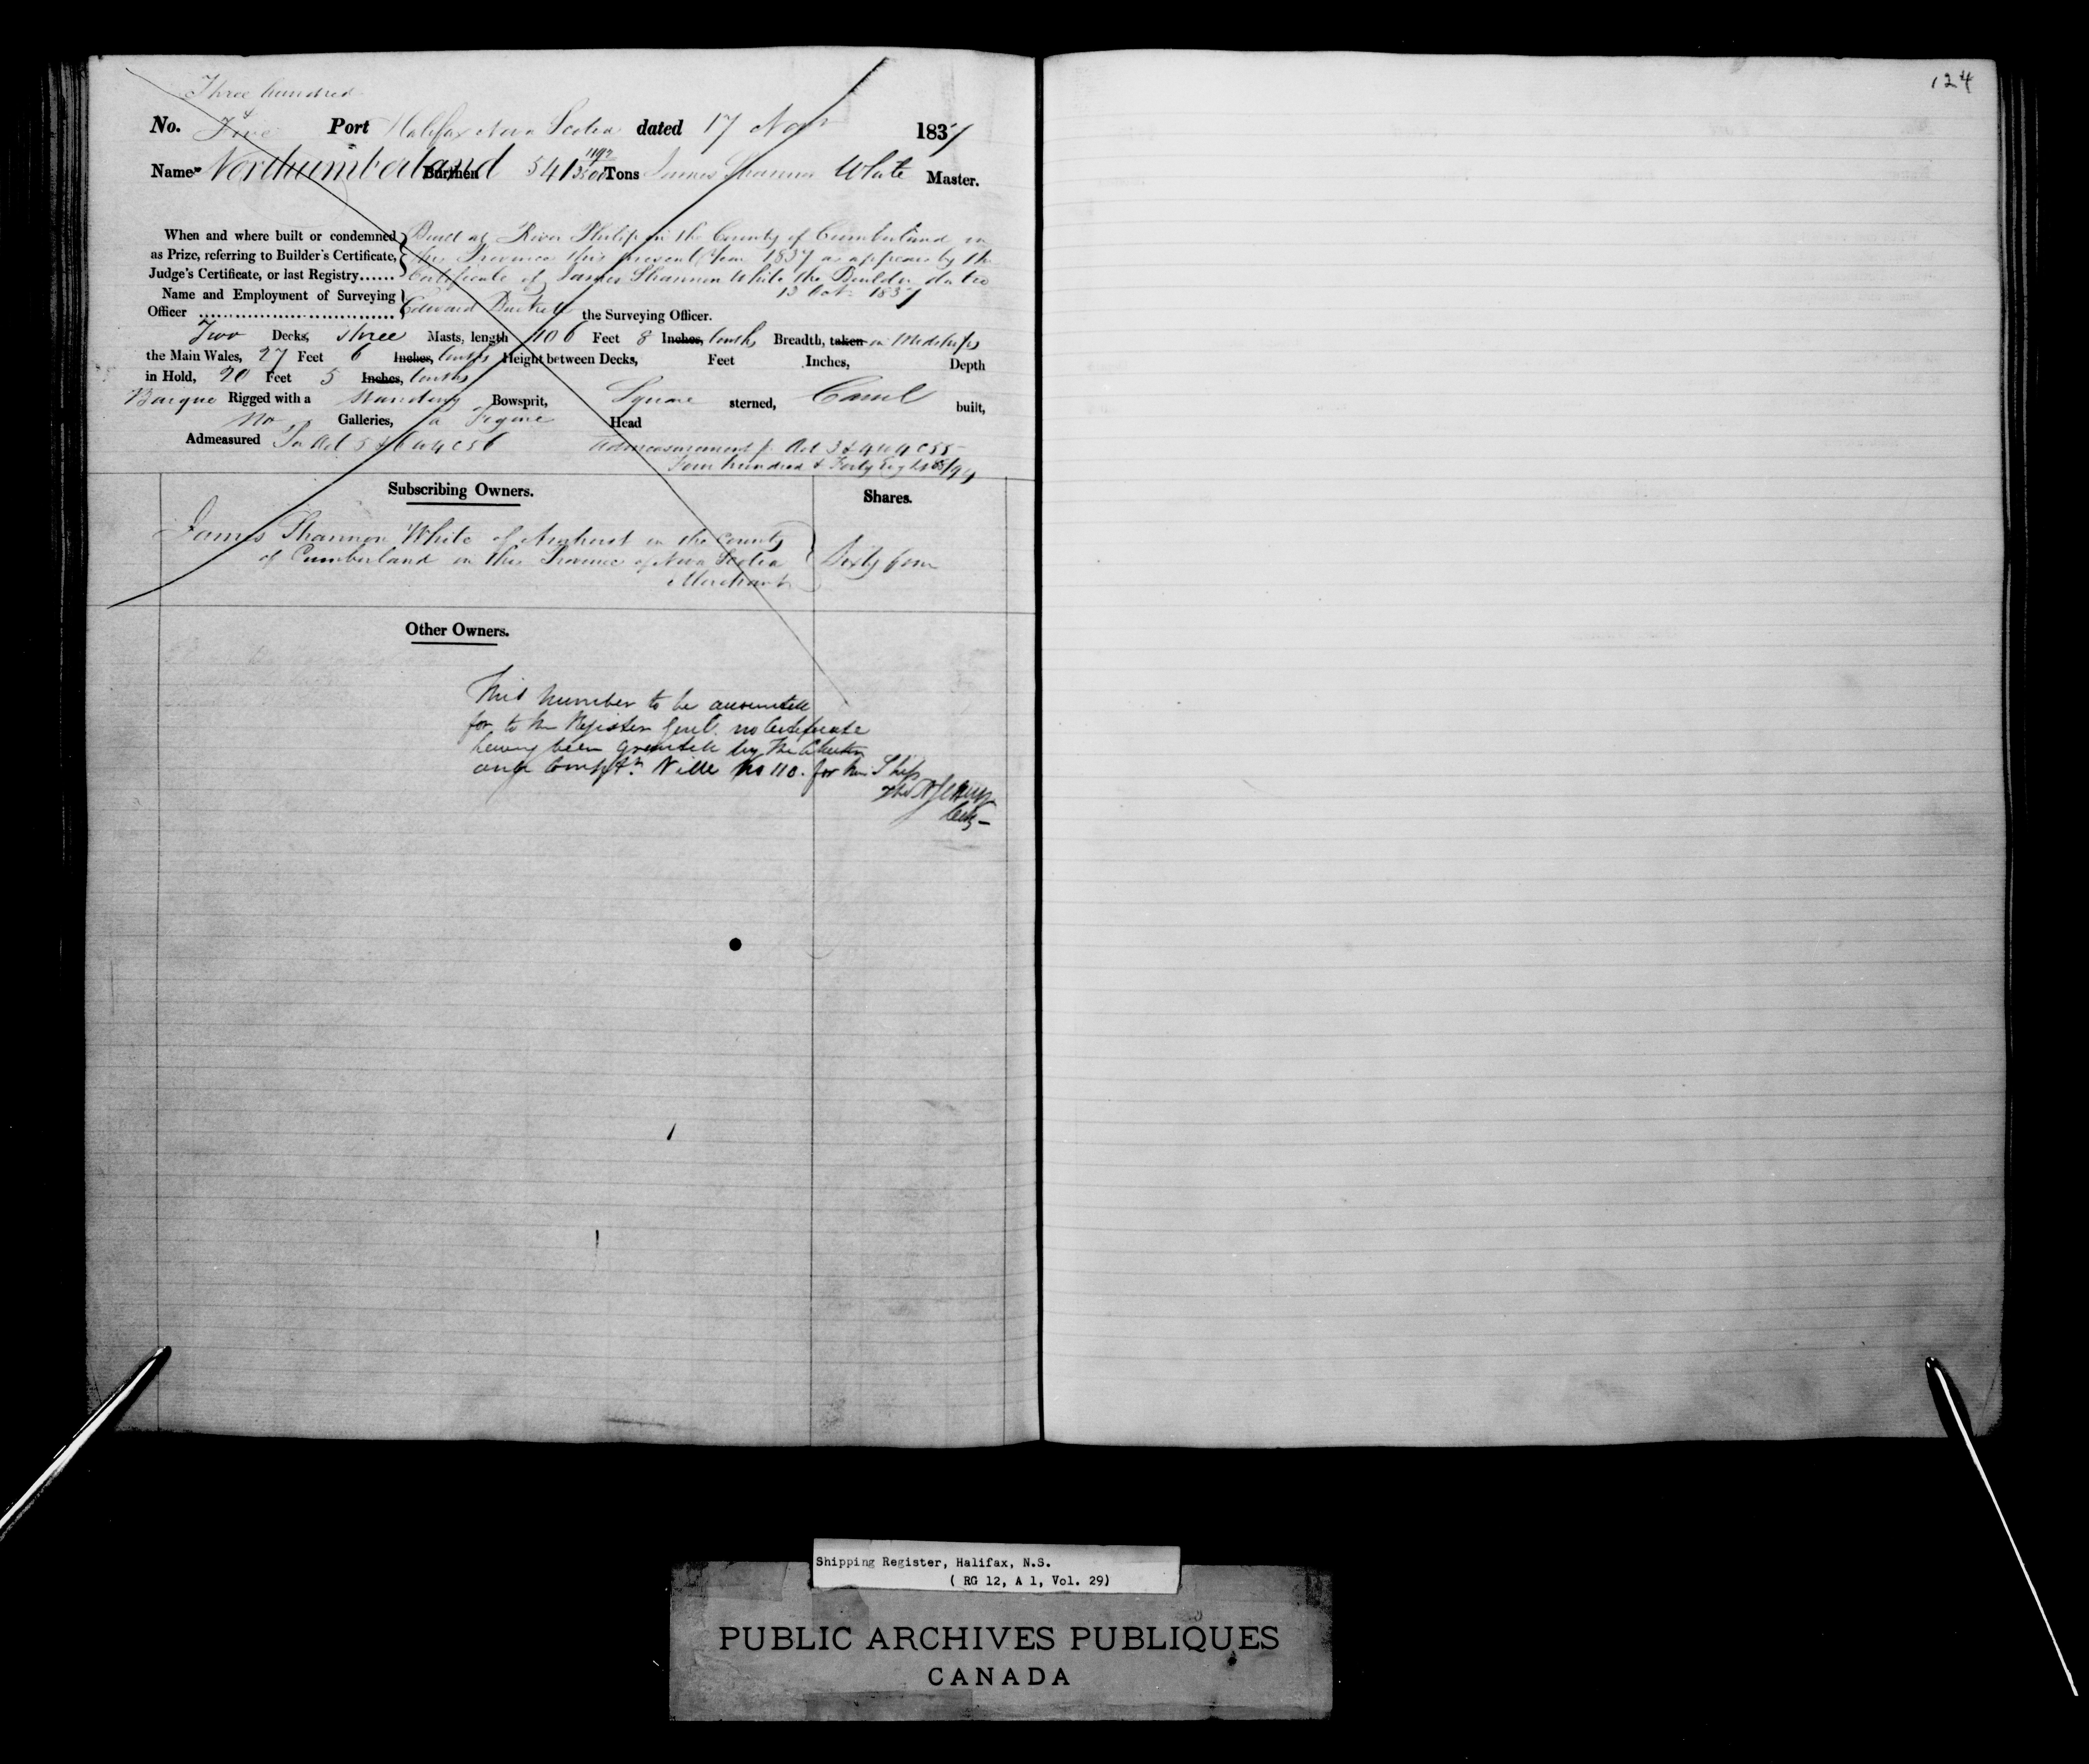 124
Three hundred
No. Five Port Halifax Nova Scotia dated 17 Novr 1837
Name Northumberland Burthen 541 Tons James Shannon White Master.
When and where built or condemned Built at River Philip in the County of Cumberland in
as Prize, referring to Builder's Certificate, this Province this present Year 1837 as appears by the
Judge's Certificate, or last Registry...... Certificate of James Shannon White the Builder dated
13 Oct 1837
Name and Employment of Surveying
Officer Edward the Surveying Officer.
Two Decks, three Masts, length 106 Feet 8 Inches, tenths Breadth, taken in Midships
the Main Wales, 27 Feet 6 Inches, tenths Height between Decks, Feet Inches, Depth
in Hold, 20 Feet 5 Inches, tenths
Barque Rigged with a standing Bowsprit, Square sterned, Carvel built,
No Galleries, a Figure Head
Admeasured Per Act 5 & 6 W 4 C 56 Admeasurement p. Act 3 & 4 W 4 C 55
Four hundred & Forty Eight
Subscribing Owners. Shares.
James Shannon White of Amherst in the County
of Cumberland in this Province of Nova Scotia Sixty four
Merchant
Other Owners.
This number to be accounted
for to the Register Genl. no Certificate
having been granted by the
and Compt. Vide No 110. for this Ship
Shipping Register, Halifax, N.S.
( RG 12, A 1, Vol. 29)
PUBLIC ARCHIVES PUBLIQUES
CANADA